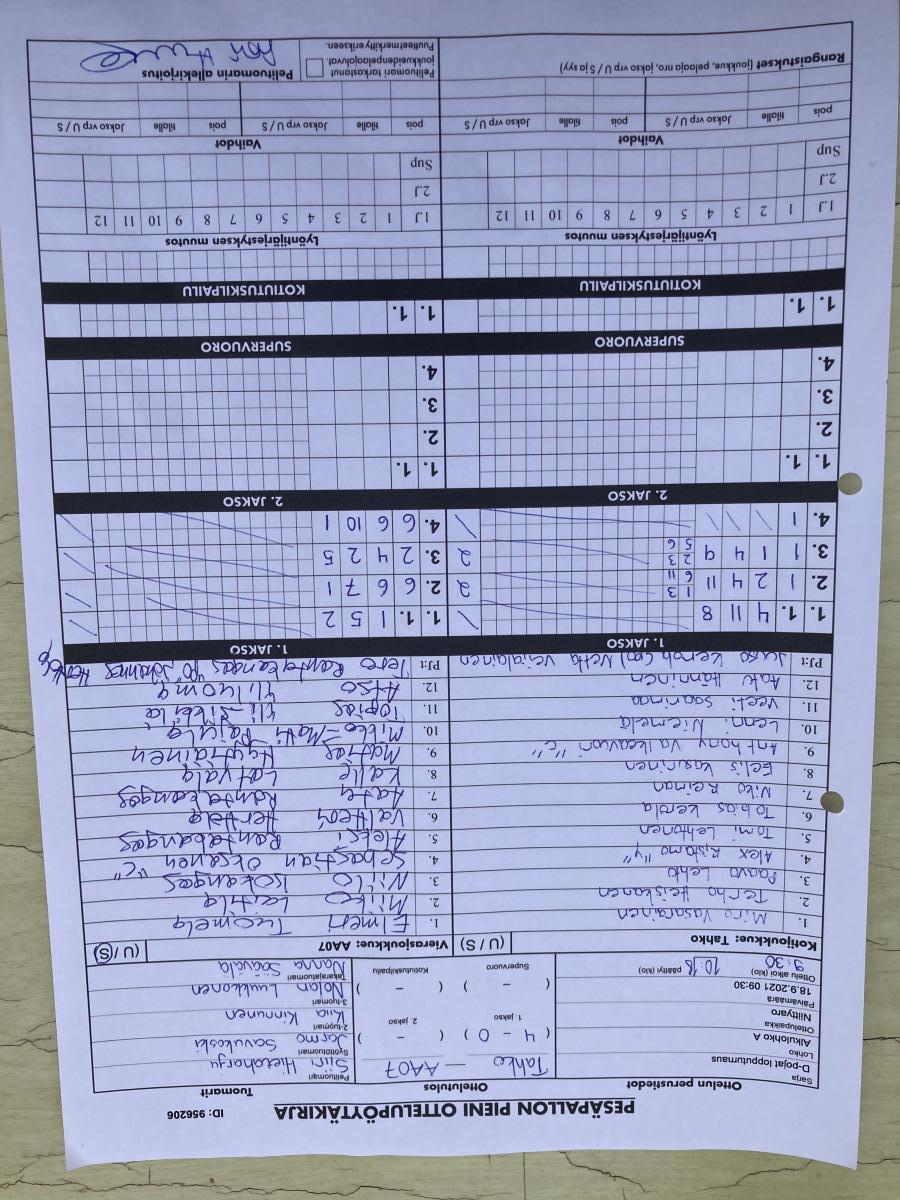 PESÄPALLON PIENI OTTELUPÖYTÄKIRJA
ID: 956206
Ottelun perustiedot
Ottelutulos
Tuomarit
Sarja
D-pojat lopputurnaus
Lohko
Alkulohko A
Ottelupaikka
Niittyaro
Päivämäärä
18.9.2021 09:30
Ottelu alkoi (klo)
9:30
päättyi (klo)
10:18
Tahko – AA07
( 4 – 0 ) ( – )
1. jakso
2. jakso
( – ) ( – )
Supervuoro
Kotiutuskilpailu
Pelituomari
Siiri Hietaharju
Syöttötuomari
Jarmo Savukoski
2-tuomari
Kiia Kinnunen
3-tuomari
Nolan Luukkonen
Takarajatuomari
Nanna Säävälä
Kotijoukkue: Tahko (U / S)
1. Miro Vasarainen
2. Terho Heiskanen
3. Paavo Lehto
4. Alex Ristamo "y"
5. Tomi Lehtonen
6. Tobias Kerola
7. Niko Reiman
8. Eelis Kasurinen
9. Anthony Valkeavuori "c"
10. Lenni Niemelä
11. Veeti Saarinaa
12. Aatu Hänninen
PJ:t Juuso Kerola (pn) Netta Verjalainen
Vierasjoukkue: AA07 (U / S)
1. Elmeri Tuomela
2. Miiko Laitila
3. Niilo Kotkangas
4. Sebastian Oksanen "c"
5. Aleksi Rantakangas
6. Valtteri Herttala
7. Aatu Rantakangas
8. Kalle Latvala
9. Matias Hautainen
10. Mikko-Matti Pajula
11. Topias Yli-Sikkilä
12. Atso Yliluoma
PJ:t Tero Rantakangas "PJ" Johannes
1. JAKSO
1. 1. 4 11 8
2. 1 2 4 11 1 3 6 11 2
3. 1 1 4 9 2 3 5 6 2
4. 1
1. JAKSO
1. 1. 1 5 2
2. 6 6 7 1
3. 2 4 2 5
4. 6 6 10 1
2. JAKSO
1. 1.
2.
3.
4.
2. JAKSO
1. 1.
2.
3.
4.
SUPERVUORO
1. 1.
SUPERVUORO
1. 1.
KOTIUTUSKILPAILU
KOTIUTUSKILPAILU
Lyöntijärjestyksen muutos
1.J 1 2 3 4 5 6 7 8 9 10 11 12
2.J
Sup
Lyöntijärjestyksen muutos
1.J 1 2 3 4 5 6 7 8 9 10 11 12
2.J
Sup
Vaihdot
pois tilalle Jakso vrp U / S pois tilalle Jakso vrp U / S
Vaihdot
pois tilalle Jakso vrp U / S pois tilalle Jakso vrp U / S
Rangaistukset (joukkue, pelaaja, nro, jakso, vrp U / S ja syy)
Pelituomari tarkastanut
joukkueidenpelaajaluvat.
Puutteet merkitty erikseen.
Pelituomarin allekirjoitus